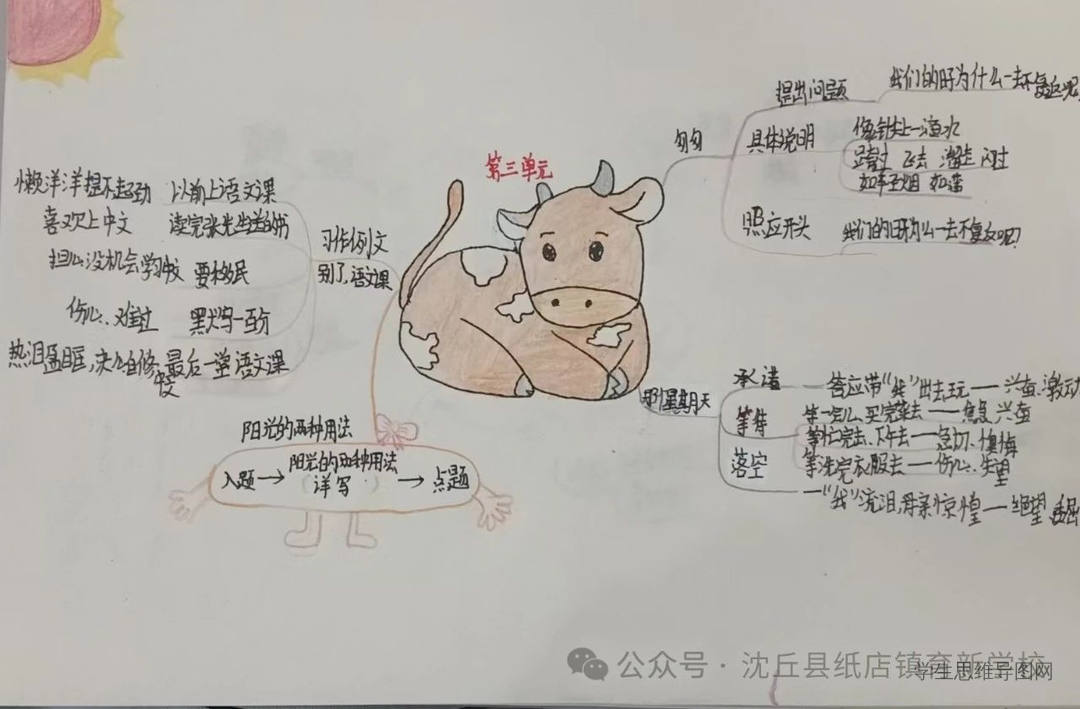 第三单元
匆匆
提出问题
我们的日子为什么一去不复返呢
具体说明
像针尖上一滴水
跨过 飞去 溜走 闪过
如轻烟 如薄
照应开头
我们的日子为什么一去不复返呢?
那个星期天
承诺
答应带“我”出去玩——兴奋.激动
等待
等一会儿、买完菜去——焦急 兴奋
等忙完去、下午去——急切、懊悔
落空
等洗完衣服去——伤心、失望
一“我”流泪,母亲惊惶——绝望 委屈
习作例文
别了,语文课
懒洋洋提不起劲 以前上语文课
喜欢上中文
担心没机会学中文 要移民
伤心、难过 默写一百分
热泪盈眶,决心自修中文 最后一堂语文课
阳光的两种用法
入题→阳光的两种用法
详写
→点题
公众号·沈丘县纸店镇育新学校
学生思维导图网